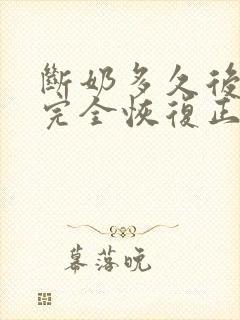 斷奶多久後
完全恢復正
幕落晚